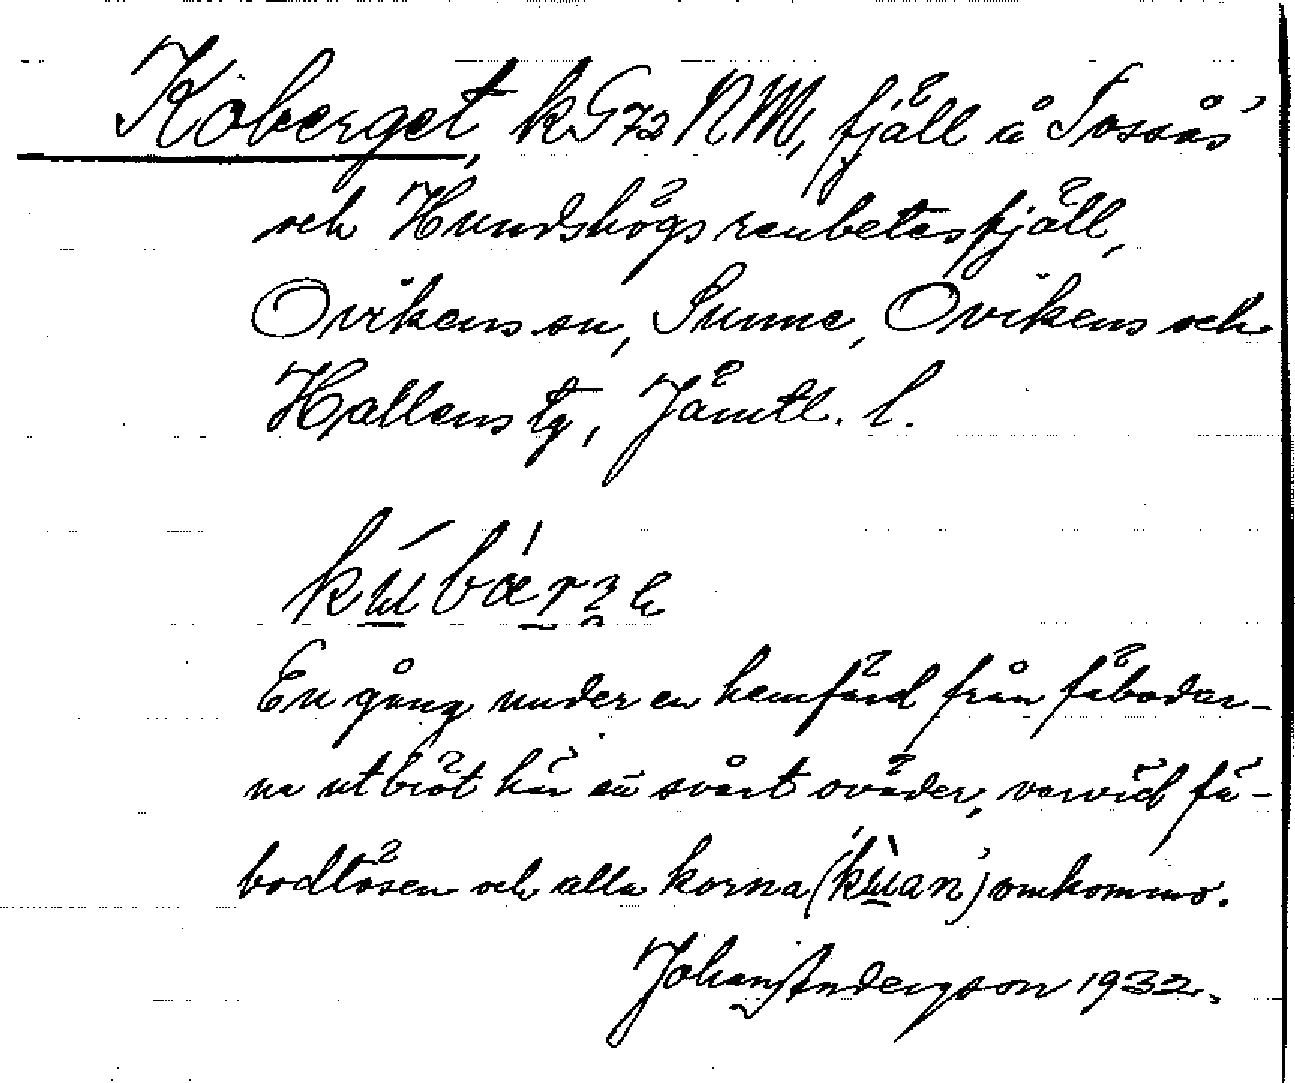 Koberget, kG72 NM, fjäll å Tossås
och Hundshögs renbetesfjäll,
Ovikens sn, Sunne, Ovikens och
Hallens tg, Jämtl. l.
kɯ́bær̀ʒe
En gång under en hemfärd från fäbodar-
na utbröt här ett svårt oväder, varvid fä-
bodtösen och alla korna (kɯ̀an) omkommo.
Johan Andersson 1932.